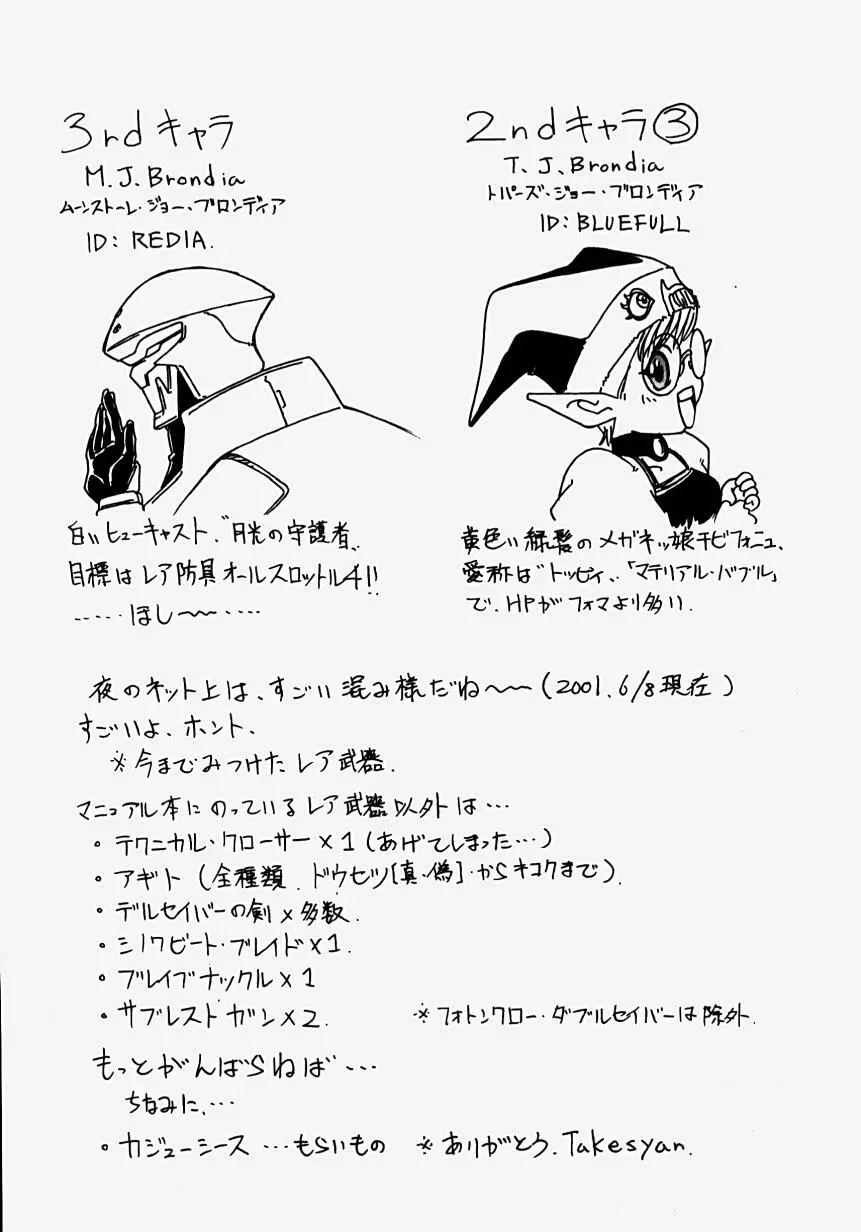 3rdキャラ
M.J.Brondia
ムーンストーレ・ジョー・ブロンディア
ID: REDIA.
白いヒューキャスト、"月光の守護者、、
目標はレア防具オールスロットル4!!
……ほし〜〜…‥
2ndキャラ③
T.J.Brondia
トパーズ・ジョー・ブロンディア
ID: BLUEFULL
黄色い緑髪のメガネッ娘チビフォニュ、
愛称は"トッピィ、、「マテリアル・バブル」
で、HPがフォマより多い.
夜のネット上は、すごい混み様だね〜〜(2001.6/8現在)
すごいよ、ホント、
※今までみつけたレア武器.
マニュアル本にのっているレア武器以外は…
・テクニカル・クローサー×1(あげてしまった…)
・アギト(全種類.ドウセツ[真・偽]・からキコクまで).
・デルセイバーの剣×多数.
・シノワビート・ブレイド×1.
・ブレイブナックル×1
・サプレストガン×2.
※フォトンクロー・ダブルセイバーは除外.
もっとがんばらねば…
ちなみに、…
・カジューシース…もらいもの ※ありがとう.Takesyan.